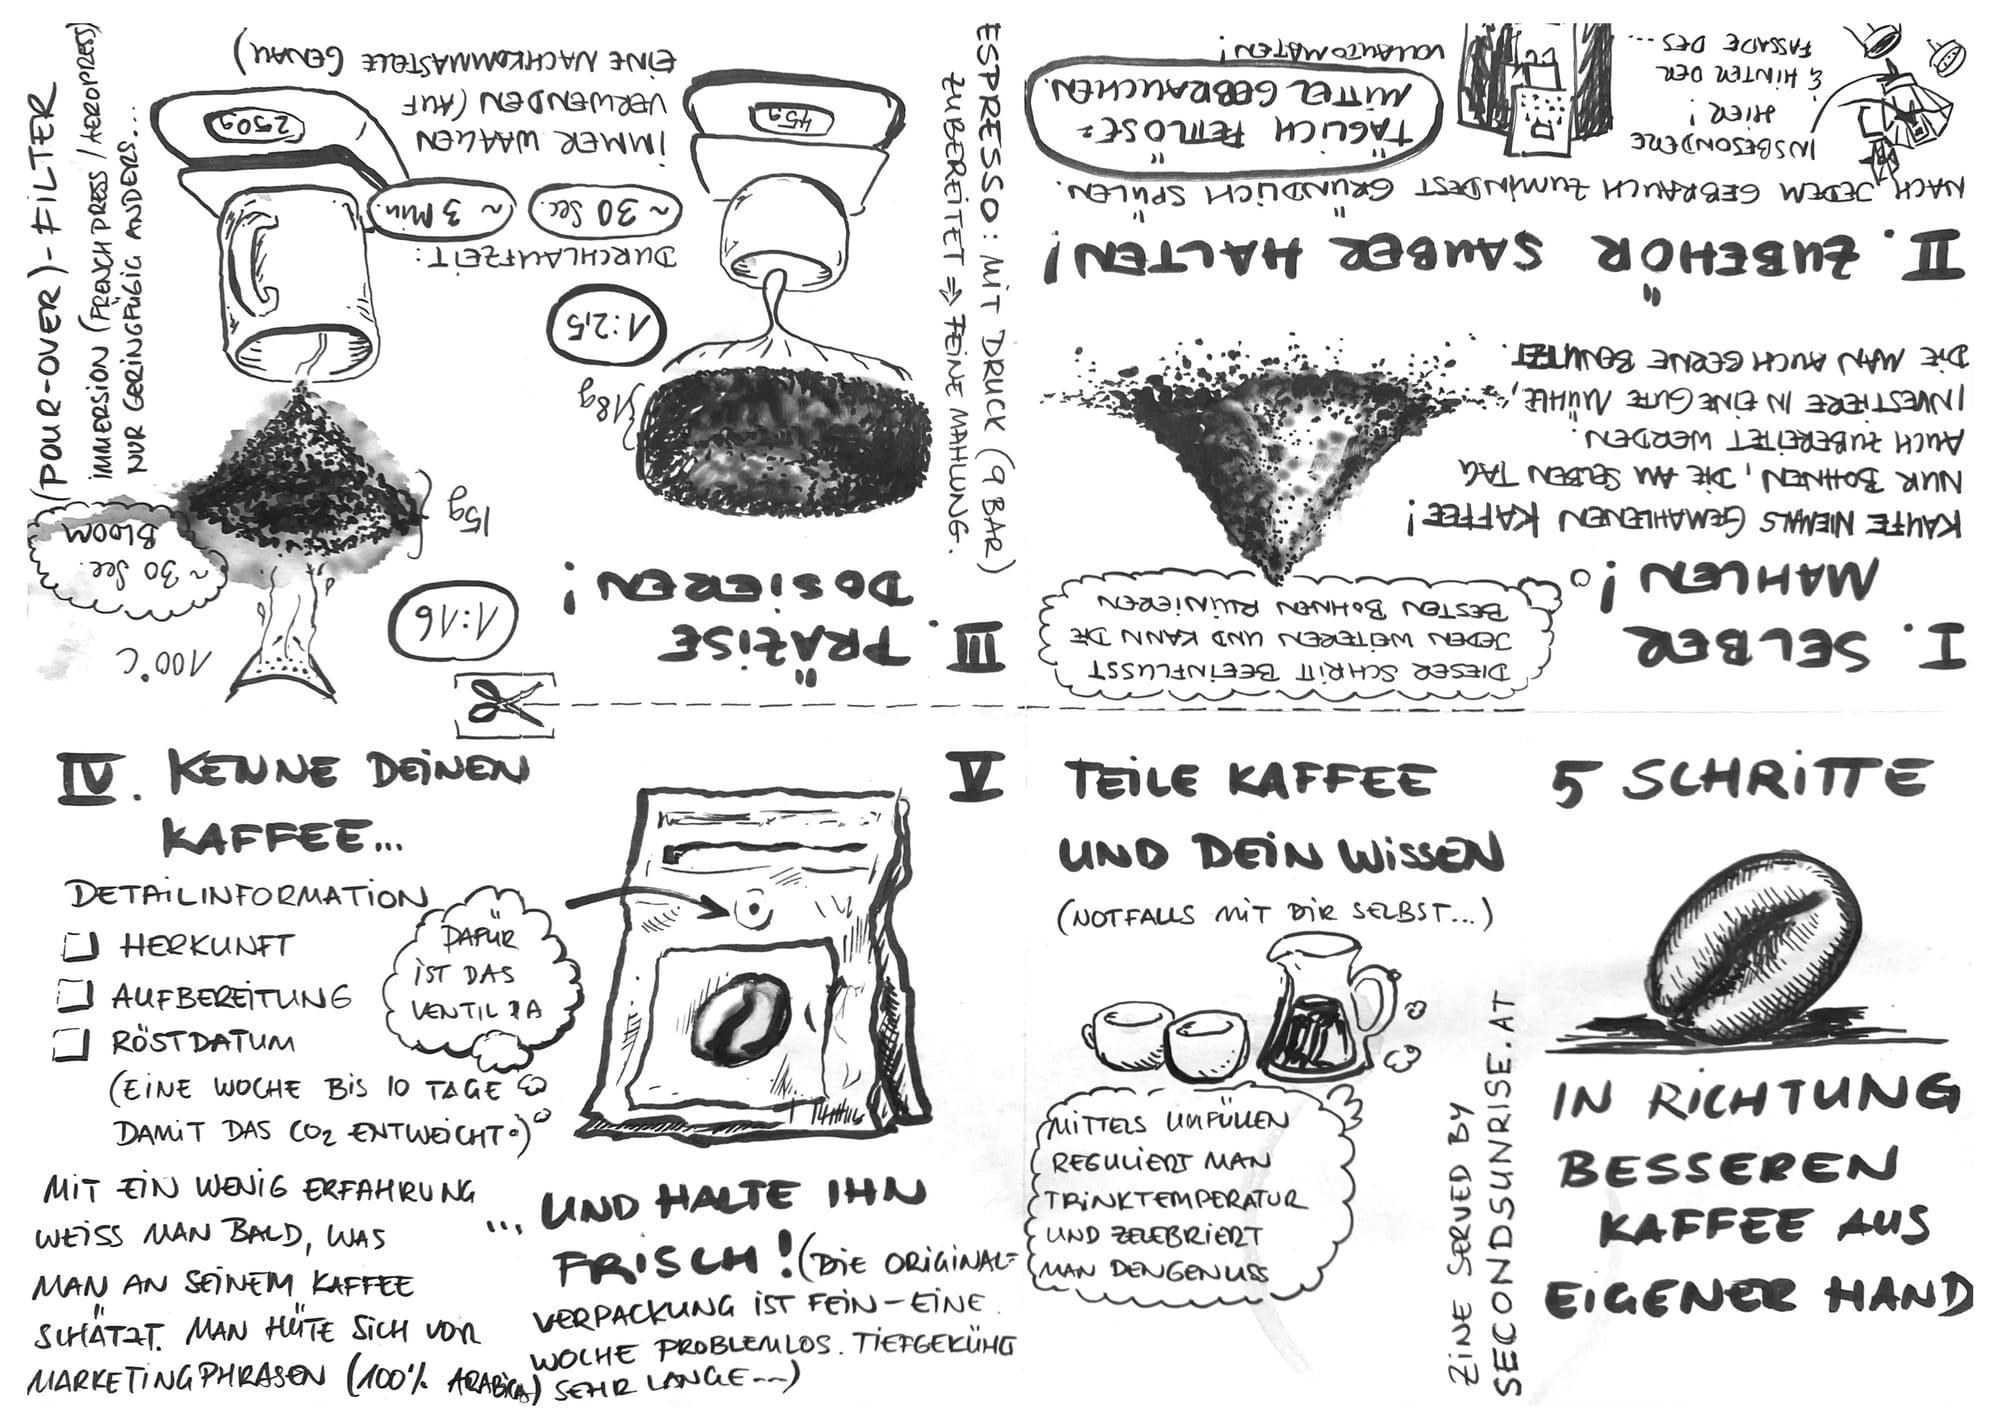 5 SCHRITTE
IN RICHTUNG
BESSEREN
KAFFEE AUS
EIGENER HAND
I. SELBER
MAHLEN!
DIESER SCHRITT BEEINFLUSST
JEDEN WEITEREN UND KANN DIE
BESTEN BOHNEN RUINIEREN
KAUFE NIEMALS GEMAHLENEN KAFFEE!
NUR BOHNEN, DIE AM SELBEN TAG
AUCH ZUBEREITET WERDEN.
INVESTIERE IN EINE GUTE MÜHLE,
DIE MAN AUCH GERNE BENUTZT.
II. ZUBEHÖR SAUBER HALTEN!
NACH JEDEM GEBRAUCH ZUMINDEST GRÜNDLICH SPÜLEN.
TÄGLICH FETTLÖSE-
MITTEL GEBRAUCHEN.
INSBESONDERE
HIER!
& HINTER DER
FASSADE DES...
VOLLAUTOMATEN!
III. PRÄZISE
DOSIEREN!
ESPRESSO: MIT DRUCK (9 BAR)
ZUBEREITET ⇒ FEINE MAHLUNG.
}18g
1:2,5
DURCHLAUFZEIT:
~30 Sec.
~3 Min.
IMMER WAAGEN
VERWENDEN (AUF
EINE NACHKOMMASTELLE GENAU)
45g
1:16
100°C
~30 Sec.
BLOOM
15g
250g
(POUR-OVER)-FILTER
IMMERSION (FRENCH PRESS / AEROPRESS)
NUR GERINGFÜGIG ANDERS...
IV. KENNE DEINEN
KAFFEE...
DETAILINFORMATION
HERKUNFT
AUFBEREITUNG
RÖSTDATUM
(EINE WOCHE BIS 10 TAGE
DAMIT DAS CO2 ENTWEICHT.)
DAFÜR
IST DAS
VENTIL DA
MIT EIN WENIG ERFAHRUNG
WEISS MAN BALD, WAS
MAN AN SEINEM KAFFEE
SCHÄTZT. MAN HÜTE SICH VOR
MARKETINGPHRASEN (100% ARABICA)
... UND HALTE IHN
FRISCH! (DIE ORIGINAL-
VERPACKUNG IST FEIN - EINE
WOCHE PROBLEMLOS. TIEFGEKÜHLT
SEHR LANGE...)
V TEILE KAFFEE
UND DEIN WISSEN
(NOTFALLS MIT DIR SELBST...)
MITTELS UMFÜLLEN
REGULIERT MAN
TRINKTEMPERATUR
UND ZELEBRIERT
MAN DEN GENUSS
ZINE SERVED BY
SECONDSUNRISE.AT